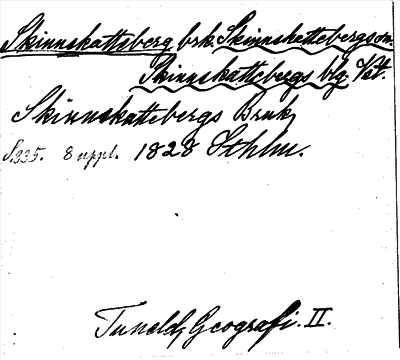 Skinnskatteberg brk. Skinnskattebergs sn.
Skinnskattebergs blg. Vstl.
Skinnskattebergs Bruk,
S. 335. 8 uppl. 1828 Sthlm.
Tuneld, Geografi. II.